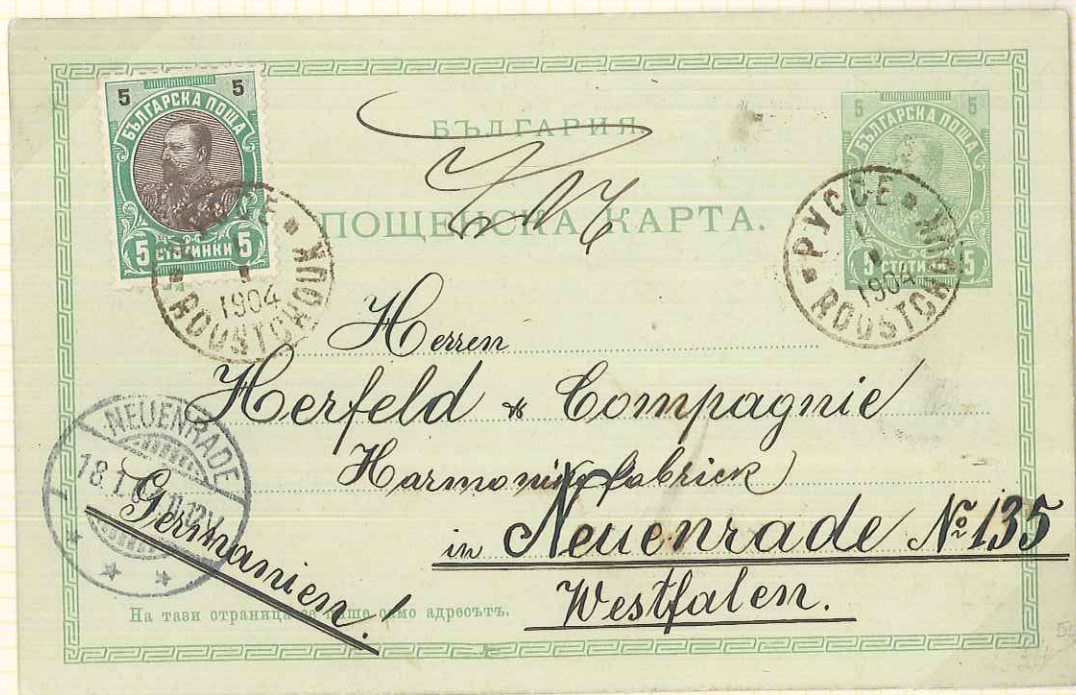 5 5
БЪЛГАРСКА ПОЩА
5 СТОТИНКИ 5
БЪЛГАРИЯ
ПОЩЕНСКА КАРТА.
5 5
БЪЛГАРСКА ПОЩА
5 СТОТИНКИ 5
1904
ROUSTCHOUK
РУССЕ
1904
ROUSTCHOUK
Herren
Herfeld & Compagnie
Harmonikafabrick
in Neuenrade № 135
Westfalen.
NEUENRADE
18.1.
Germanien!
На тази страница се пише само адресътъ.